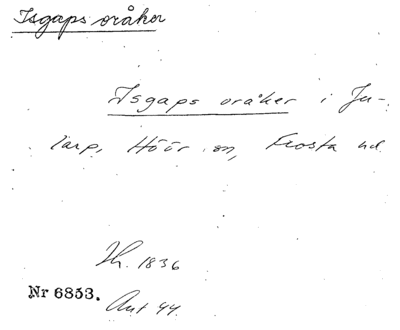 Isgaps oråker
Isgaps oråker i Ju-
larp, Höör sn, Frosta hd
Th. 1836
Nr 6853.
Ant 44.